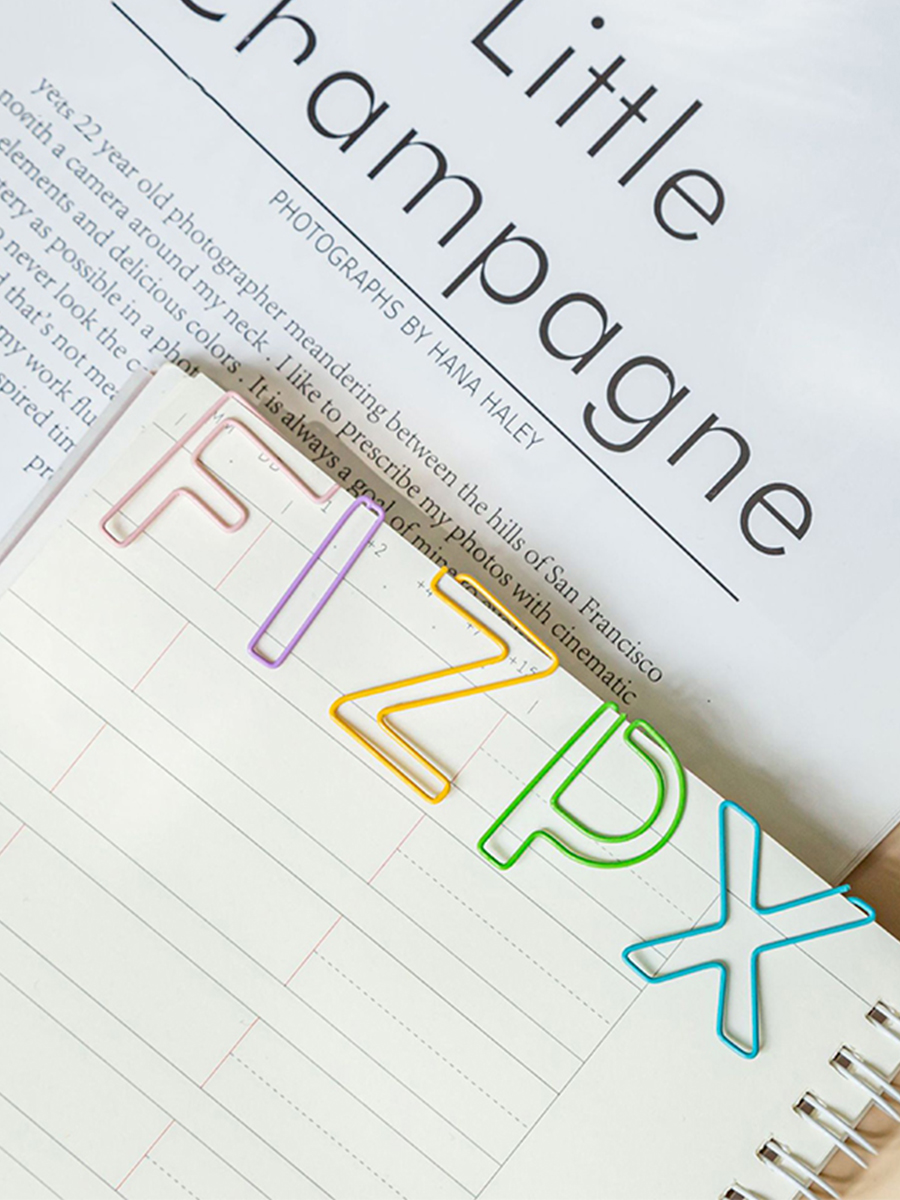 Little
Champagne
PHOTOGRAPHS BY HANA HALEY
22 year old photographer meandering between the hills of San Francisco
with a camera around my neck. I like to prescribe my photos with cinematic
elements and delicious colors. It is always a goal of mine to
as possible in a
never look the
that's not
my work
tim
F I Z P X
+2
+4
+15